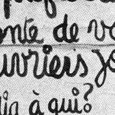 nte de v
uvriers jo
in à qui?